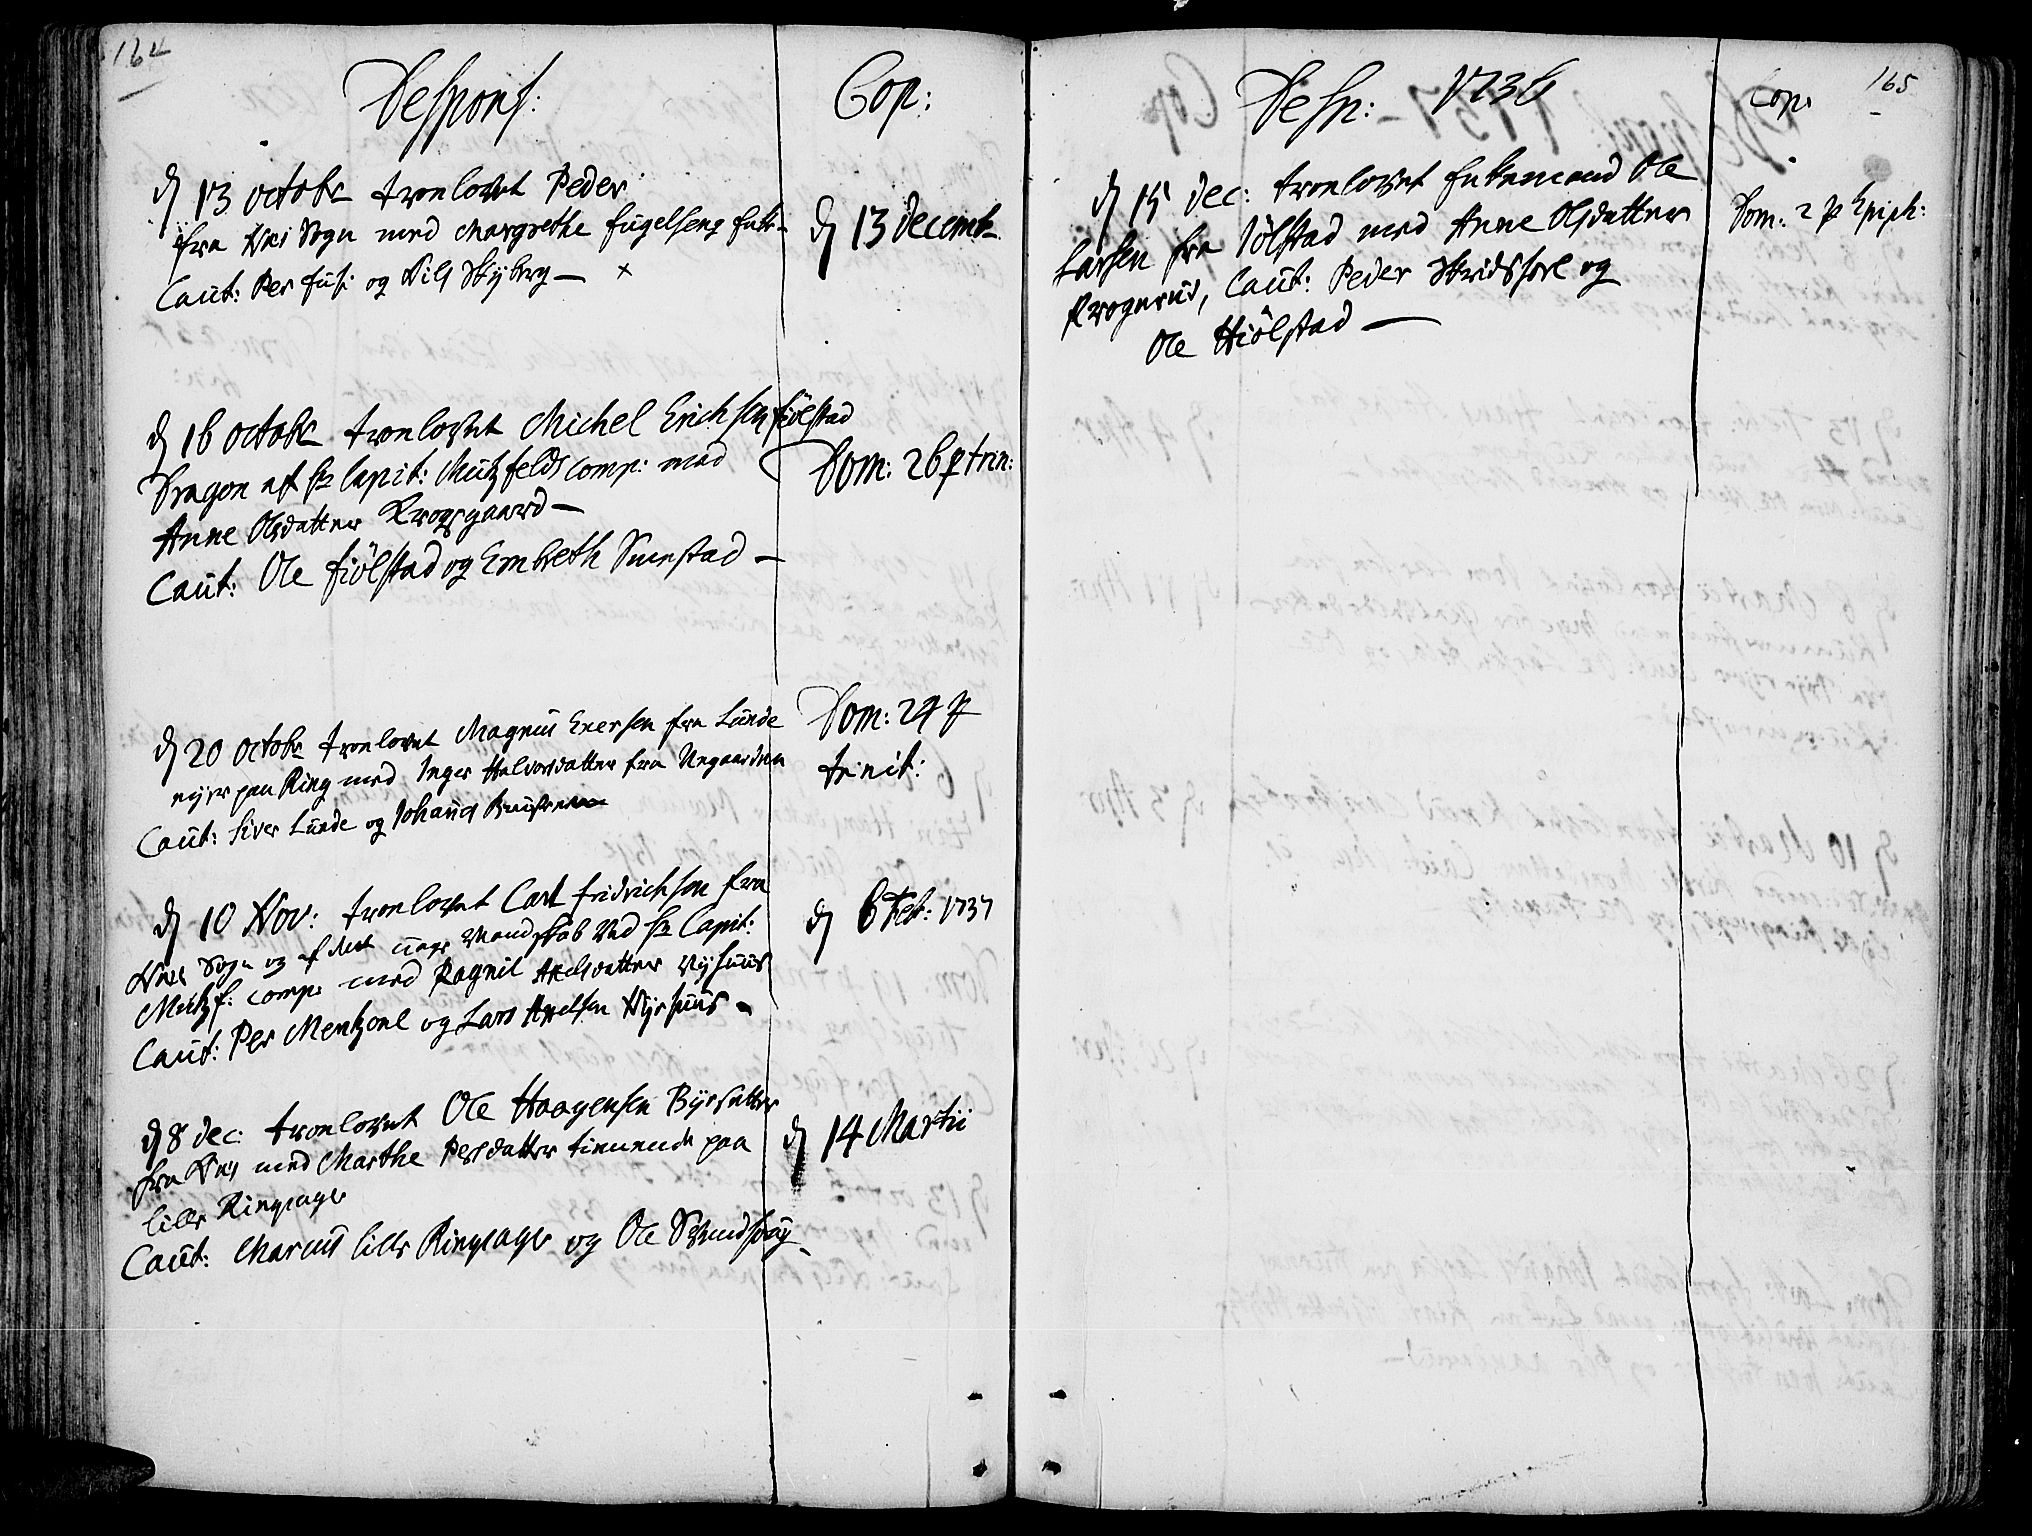 164
Despons:
Cop:
d 13 octobr trolovet Peder
fra Næs Sogn med Margrethe fugelseng
Caut: Per fusi og Nils Skyberg — x
d 13 decemb
d 16 octobr trolovet Michel Erichsen fiölstad
Dragon af Hr Capit: Mützfelds comp: med
Anne Olsdatter Krogsgaard —
Caut: Ole fiölstad og Embreth Smestad —
Dom: 26 p trin:
d 20 octobr trolovet Magnus Enersen fra Lunde
eyer paa Ring med Inger Halvorsdatter fra
Caut: Siver Lunde og Johannes
Dom: 24 p
trinit:
d 10 Nov: trolovet Carl fridrichsen fra
Næs Sogn og af det unge Mandskab ved Hr Capit:
Mützf: comp: med Ragnil Axelsdatter Nyhuus
Caut: Per Mentzonl og Lars Axelsen Nyehuus —
d 6 Feb: 1737
d 8 dec: trolovet Ole Haagensen Byesætter
fra Næs med Marthe Persdatter tienende paa
lille Ringsager
Caut: Marcus lille Ringsager og Ole Svendshøy
d 14 Martii
Desp: 1736
Cop:
165
d 15 dec: trolovet Enkemand Ole
Larsen fra Jölstad med Anne Olsdatter
Krogerud, Caut: Peder og
Ole Hiölstad —
Dom: 2 p Epiph: